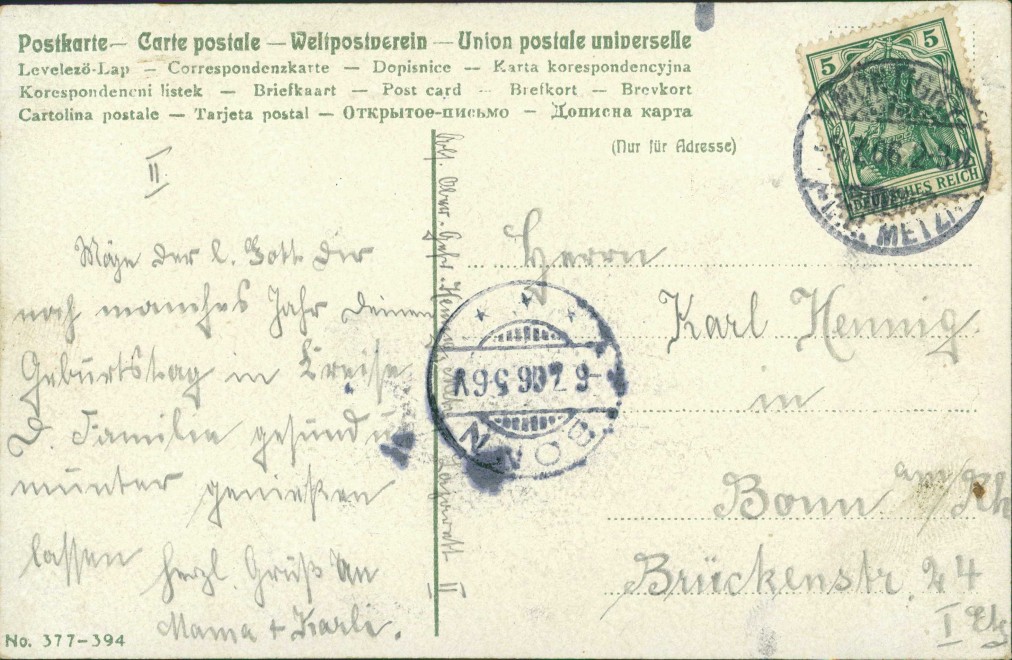 Postkarte — Carte postale — Weltpostverein — Union postale universelle
Levelező-Lap — Correspondenzkarte — Dopisnice — Karta korespondencyjna
Korespondencni listek — Briefkaart — Post card — Brefkort — Brevkort
Cartolina postale — Tarjeta postal — Открытое-письмо — Дописна карта
(Nur für Adresse)
5
5
DEUTSCHES REICH
METZ
II
Möge der l. Gott Dir
noch manches Jahr Deinen
Geburtstag im Kreise
D. Familie gesund u
munter genießen
lassen herzl. Gruß an
Mama + Karle.
Abs.
II
BONN
-6.7.06.5-6V
Herrn
Karl Hennig
in
Bonn am/Rh
Brückenstr. 24
I Etg
No. 377-394